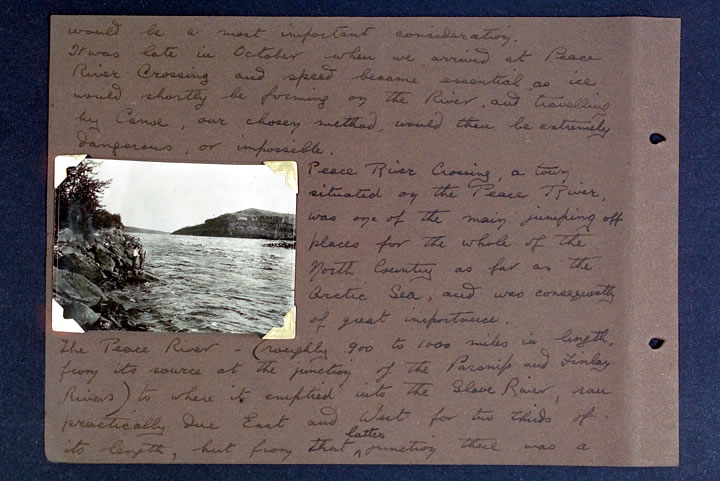 would be a most important consideration.
It was late in October when we arrived at Peace
River Crossing and speed became essential, as ice
would shortly be forming on the River, and travelling
by Canoe, our chosen method, would then be extremely
dangerous, or impossible.
Peace River Crossing, a town
situated on the Peace River,
was one of the main jumping off
places for the whole of the
North Country as far as the
Arctic Sea, and was consequently
of great importance.
The Peace River - (roughly 900 to 1000 miles in length,
from its source at the junction of the Parsnip and Finlay
Rivers) to where it emptied into the Slave River, ran
practically due East and West for two thirds of
its length, but from that latter junction there was a